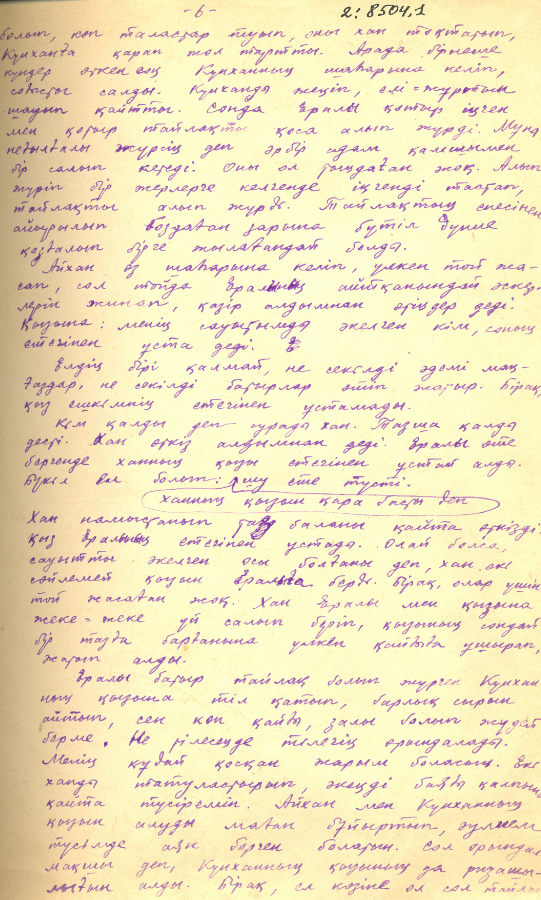 -6-
2:8504,1
болып, көп таластар туып, оны хан тоқтатып,
Күнханға қарап жол тартты. Арада бірнеше
күндер өткен соң Күнханның шаһарына келіп,
соғысты салды. Күнханды жеңіп, елі-жұртын
шауып қайтты. Сонда Ералы қотыр інген
мен қотыр тайлақты қоса алып жүрді. Мұны
неғылғалы жүрсің деп әрбір адам қамшымен
бір салып кетеді. Оны ол тыңдаған жоқ. Алып
жүріп бір жерлерге келгенде іңгенді тастап,
тайлақты алып жүрді. Тайлақтың енесінен
айырылып боздаған зарына бүтіл дүние
қозғалып бірге жылағандай болды.
Айхан өз шаһарына келіп, үлкен той жа-
сап, сол тойда Ералының айтқанындай әскер-
лерін жинап, қазір алдымнан өтіңдер деді.
Қызына: менің сауытымды әкелген кім, соның
етегінен ұста деді.
Елдің бірі қалмай, не секілді әдемі мақ-
таздар, не секілді батырлар өтіп жатыр. Бірақ,
қыз ешкімнің етегінен ұстамады.
Кім қалды деп сұрады хан. Тазша қалды
десті. Хан өткіз алдымнан деді. Ералы өте
бергенде ханның қызы етегінен ұстай алды.
Бүкіл ел болып: шу ете түсті.
ханның қызын қара басты деп
Хан намыстанып таз баланы қайта өткізді.
қыз Ералының етегінен ұстады. Олай болса,
сауытты әкелген осы болғаны деп, хан екі
сөйлемей қызын Ералыға берді. Бірақ, олар үшін
той жасаған жоқ. Хан Ералы мен қызына
жеке-жеке үй салып беріп, қызының сондай
бір тазға барғанына үлкен қайғыға ұшырап,
жатып алды.
Ералы батыр тайлақ болып жүрген Күнхан
ның қызына тіл қатып, барлық сырын
айтып, сен көп қайғы, залы болып жүдей
берме. Не тілесеңде тілегің орындалады.
Менің құдай қосқан жарым боласың. Екі
ханды татуластырып, әкеңді баяғы қалпына
қайта түсіремін. Айхан мен Күнханның
қызын алуды маған бұйыртып, әулием
түсімде аян берген болатын. Сол орындал
мақшы деп, Күнханның қызының да ризашы-
лығын алды. Бірақ, ел көзіне ол сол тайлақ